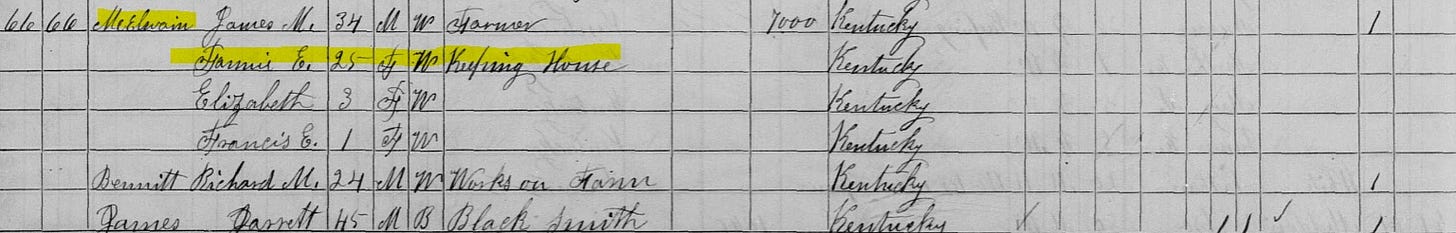 66 66 McElwain James M. 34 M W Farmer 7000 Kentucky 1
Fannie E. 25 F W Keeping House Kentucky
Elizabeth 3 F W Kentucky
Francis E. 1 F W Kentucky
Bennitt Richard M. 24 M W Works on Farm Kentucky 1
James Garrett 45 M B Black Smith Kentucky ✓ 1 1 ✓ 1